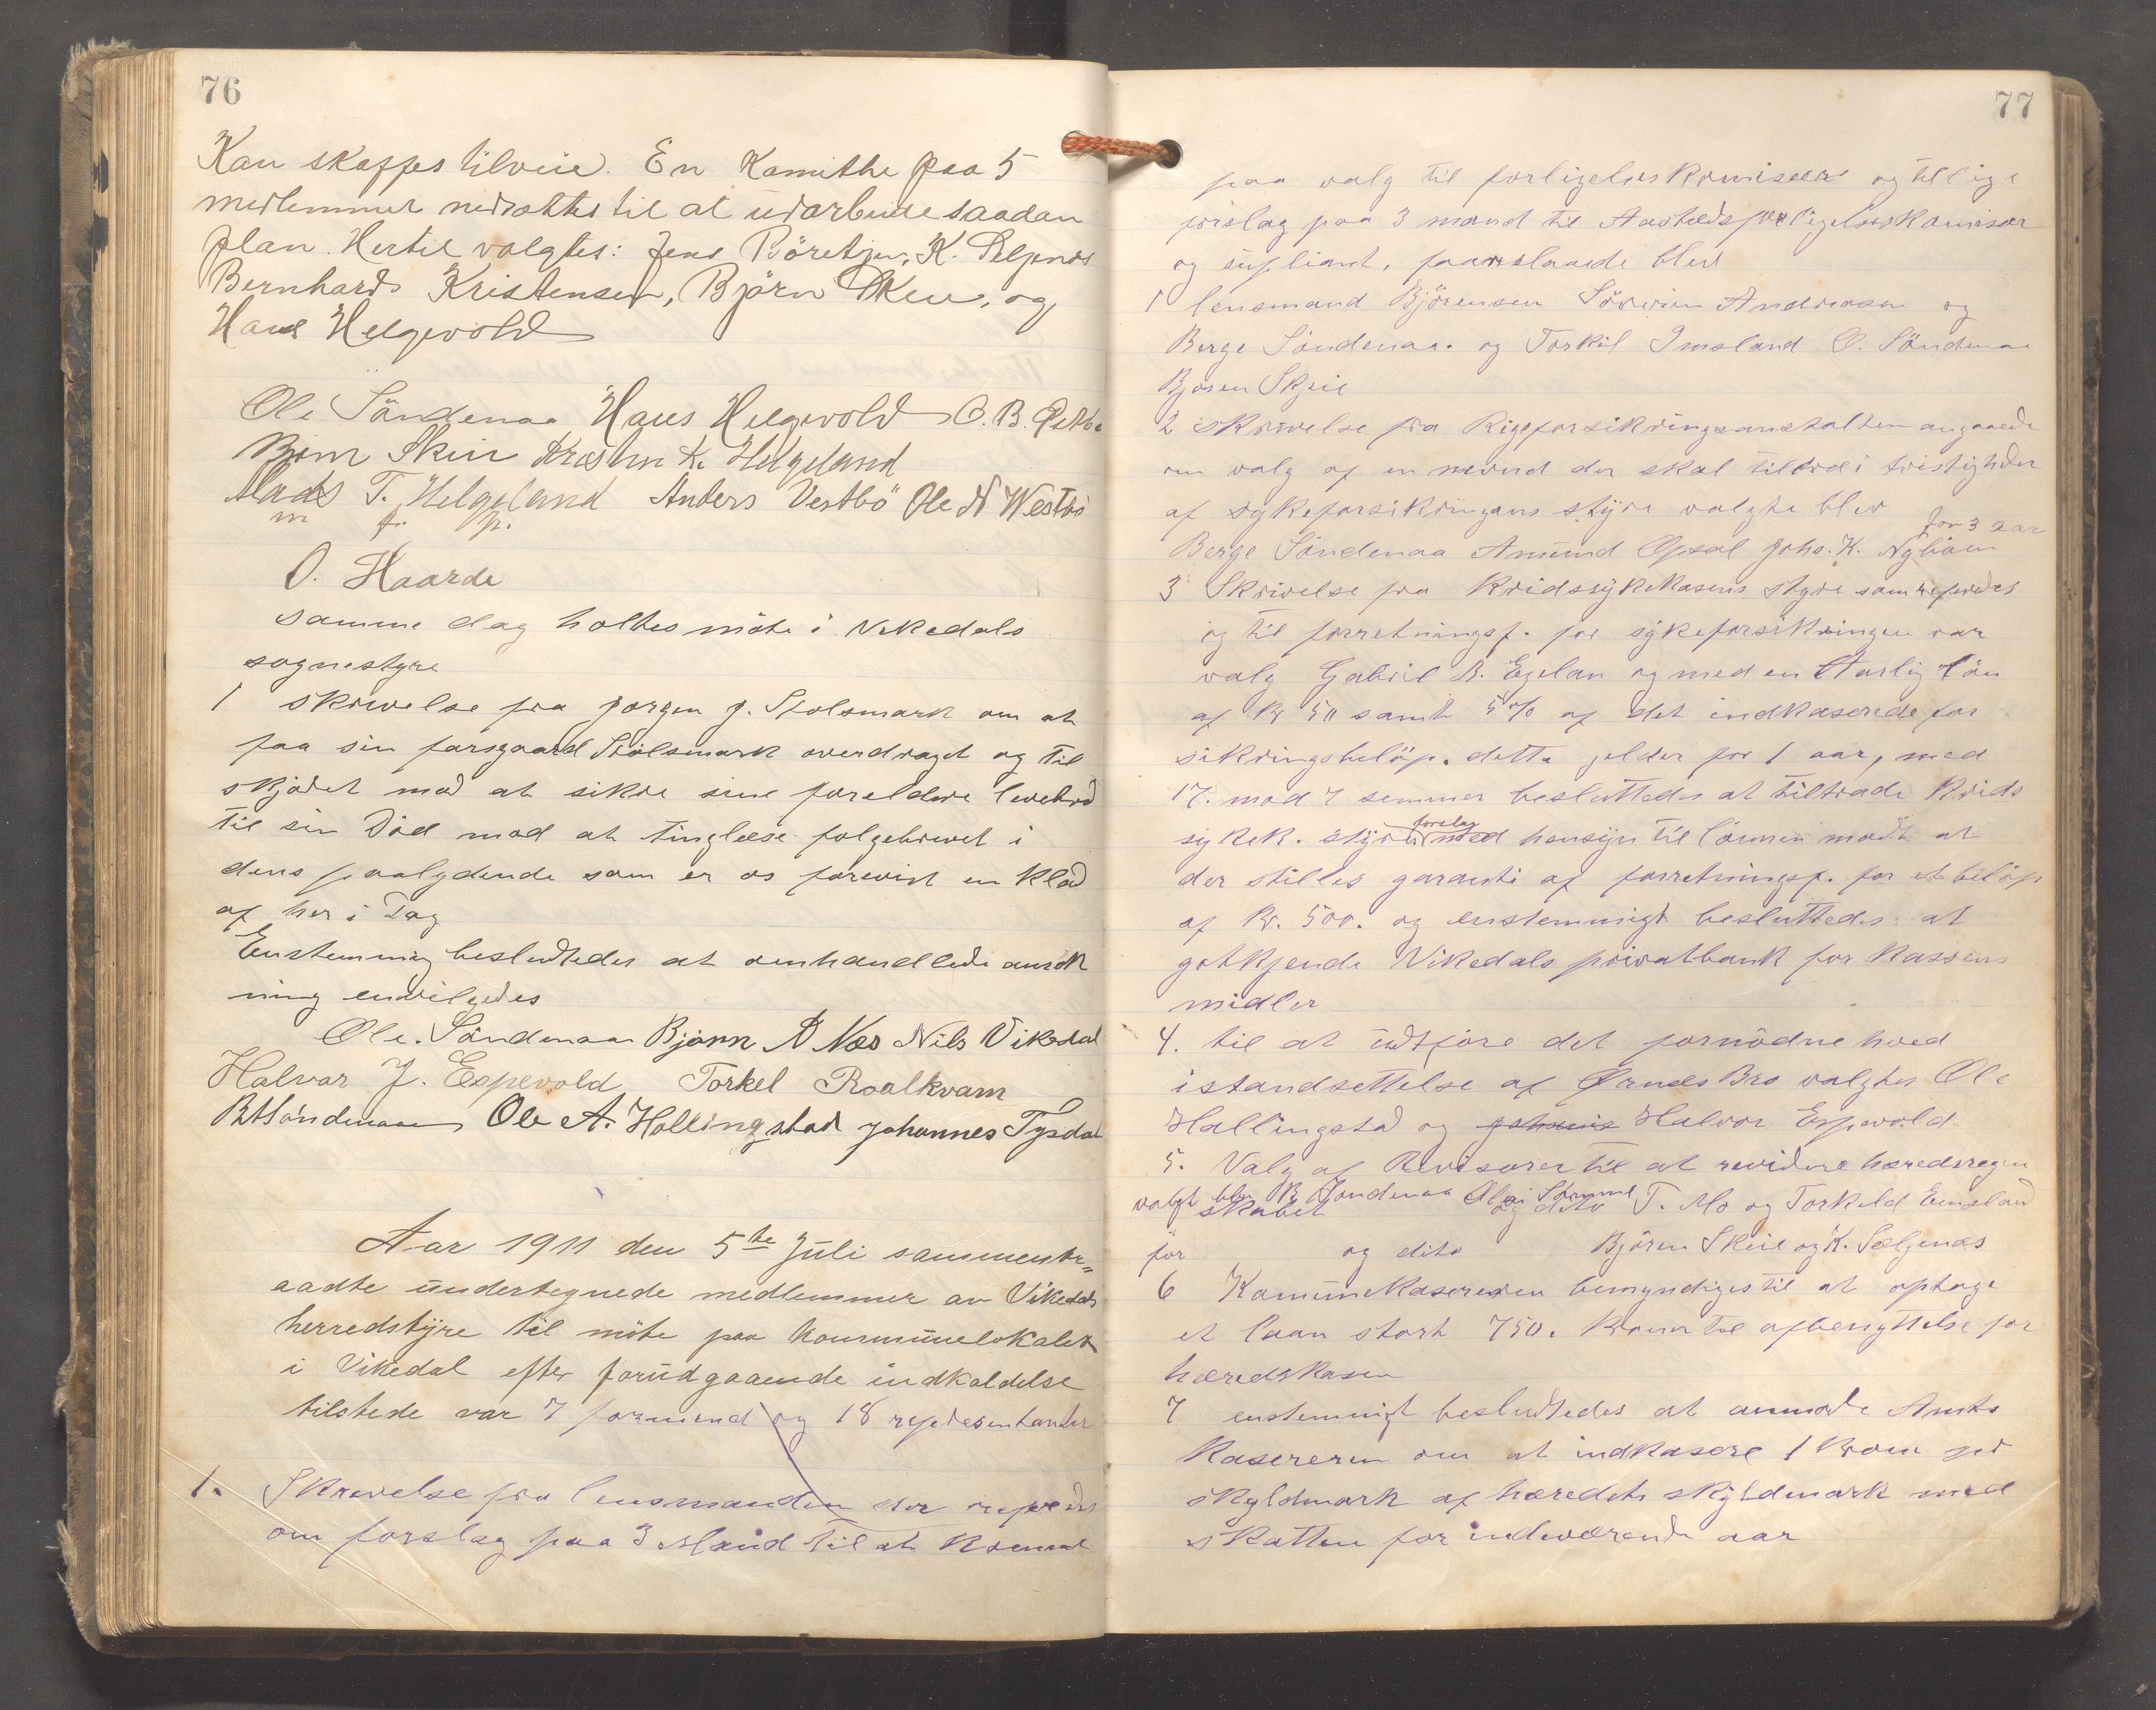 76
Kan skaffes tilveie. En Komithe paa 5
medlemmer nedsattes til at udarbeide saadan
plan. Hertil valgtes: Jens Böretjen, K. Selgenes
Bernhard Kristensen, Björn Skeie, og
Hans Helgevold
Ole Söndenaa Hans Helgevold O. B.
Björn Skeie Kristen K. Helgeland
Mads T. Helgeland Anders Vestbö Ole N Westbö
m f. p.
O. Haarde
samme dag holtes möte i Vikedals
sognestyre
1 skrivelse fra Jørgen J. Stølsmark om at
faa sin farsgaard Stølsmark overdraget og til
skjødet mod at sikre sine foreldre levebrød
til sin Död mod at tinglese folgebrevet i
dens paalydende som er os forevist en klad
af her i Dag
Enstemmig besluttedes at omhandlede ansøk
ning envilgedes
Ole Söndenaa Bjørn A Næs Nils Vikedal
Halvar J. Espevold Torkel Roalkvam
B. Söndenaa Ole A. Hallingstad Johannes Tysdal
Aar 1911 den 5te Juli sammentr=
aadte undertegnede medlemmer av Vikedals
herredstyre til möte paa Kommunelokalet
i Vikedal efter forudgaaende indkaldelse
tilstede var 7 formend og 18 representanter
1. Skrivelse fra lensmanden der referedes
om forslag paa 3 Mand til at
77
paa valg til forligelseskomisær og tillige
forslag paa 3 mand til Aastedsforligelseskomisær
og supliant, foreslaaede blev
1 lensmand Björensen Andreasen og
Berge Söndenaa. og Torkil Imsland O. Söndenaa
Bjøren Skeie
2 skrivelse fra Rigsforsikringsanstalten angaaede
om valg af en nævnd der skal tiltrede i tvistigheder
af sykeforsikringans styre valgte blev
for 3 aar
Berge Söndenaa Amund Opsal Johs. K. Nybøen
3 Skrivelse fra Kridssykekasens styre som referedes
og til forretningsf. for sykeforsikringen var
valg Gabriel B. Egelan og med en Aarlig lön
af Kr 50 samt 5 % af det indkaserede for
sikringsbelöp. dette jelder for 1 aar, med
17. mod 7 stemmer besluttedes at tiltrade Krids
forslag
sykek. styre med hensyn til lönnen modt at
der stilles garanti af forretningsf. for et belöp
af Kr. 500. og enstemmigt besluttedes at
gotkjende Vikedals privatbank for Kassens
midler
4. til at udföre det fornödne hved
istandsettelse af Ørnes Bro valgtes Ole
Hallingstad og Halvor Espevold
5. Valg af Revisorer til at revidere heredsregn
valgt blev B Söndenaa T. Mo og Torkeld Emsland
skabet og dito
för og dito Björen Skeie og K. Selgenæs
6 Komunekasereren bemyndiges til at optage
et laan stort 750. Kroner til afbenyttelse for
heredskasen
7 enstemmigt besluttedes at anmode Amts
Kasereren om at indkasere 1 krone pr
skyldmark af heredets skyldmark med
skatten for indeværende aar